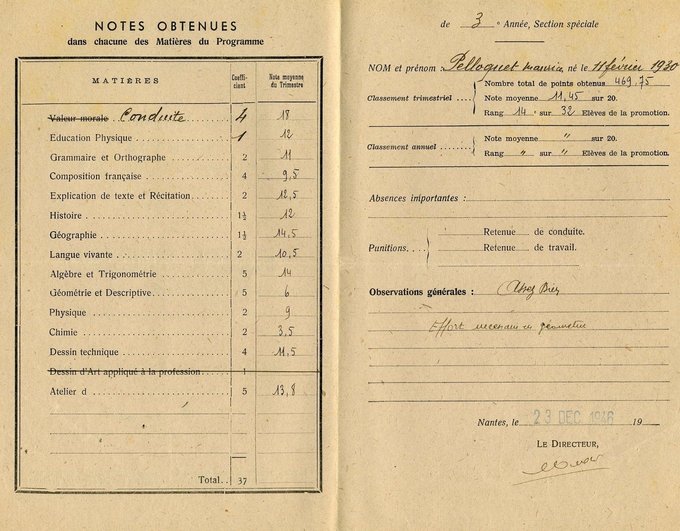 NOTES OBTENUES
dans chacune des Matières du Programme
MATIÈRES Coefficient Note moyenne du Trimestre
Valeur morale Conduite 4 18
Education Physique 1 12
Grammaire et Orthographe 2 11
Composition française 4 9,5
Explication de texte et Récitation 2 12,5
Histoire 1½ 12
Géographie 1½ 14,5
Langue vivante 2 10,5
Algèbre et Trigonométrie 5 14
Géométrie et Descriptive 5 6
Physique 2 9
Chimie 2 3,5
Dessin technique 4 11,5
Dessin d'Art appliqué à la profession 1
Atelier d 5 13,8
Total 37
de 3 Année, Section spéciale
NOM et prénom : Pelloquet Maurice, né le 11 février 1930
Nombre total de points obtenus 469,75
Classement trimestriel Note moyenne 11,45 sur 20.
Rang 14 sur 32 Elèves de la promotion.
Note moyenne " sur 20.
Classement annuel Rang " sur " Elèves de la promotion.
Absences importantes :
Retenue de conduite.
Punitions
Retenue de travail.
Observations générales : Assez Bien
Effort nécessaire en géométrie
Nantes, le 23 DEC 1946 19
LE DIRECTEUR,